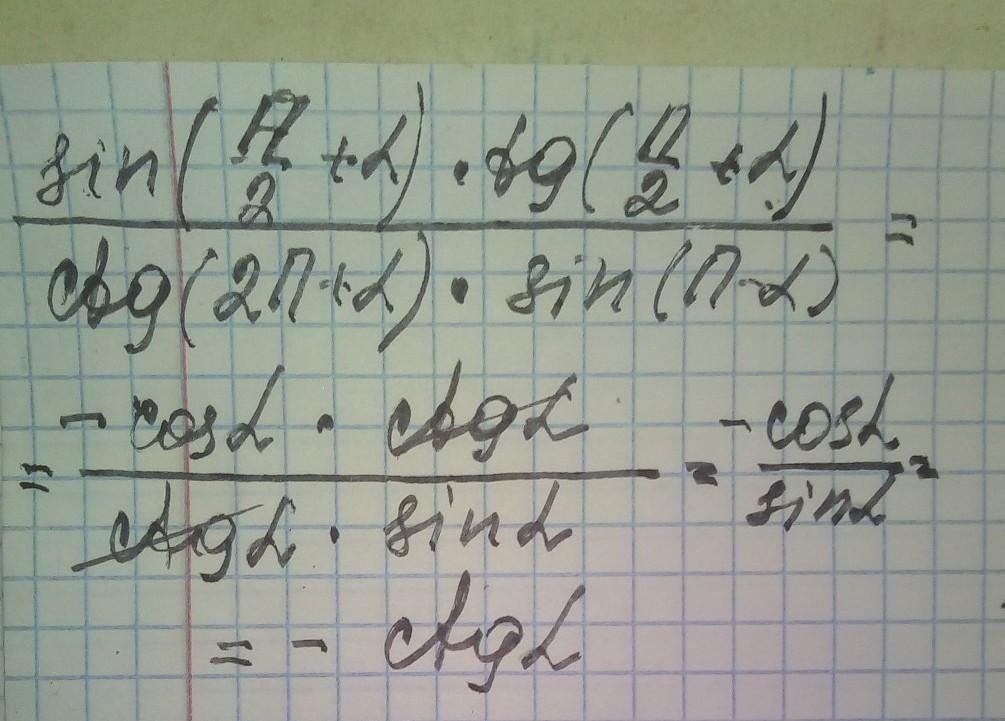 sin(π/2 + α) · tg(π/2 + α)
ctg(2π + α) · sin(π - α) =
= - cosα · ctgα / ctgα · sinα = - cosα / sinα =
= - ctgα